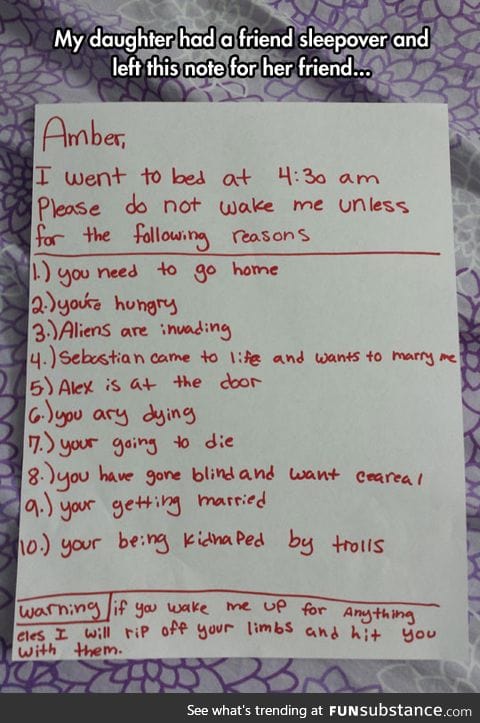 My daughter had a friend sleepover and
left this note for her friend...
Amber,
I went to bed at 4:30 am
Please do not wake me unless
for the following reasons
1.) you need to go home
2.) you're hungry
3.) Aliens are invading
4.) Sebastian came to life and wants to marry me
5) Alex is at the door
6.) you ary dying
7.) your going to die
8.) you have gone blind and want ceareal
9.) your getting married
10.) your being kidnaped by trolls
warning if you wake me up for Anything
eles I will rip off your limbs and hit you
with them.
See what's trending at FUNsubstance.com